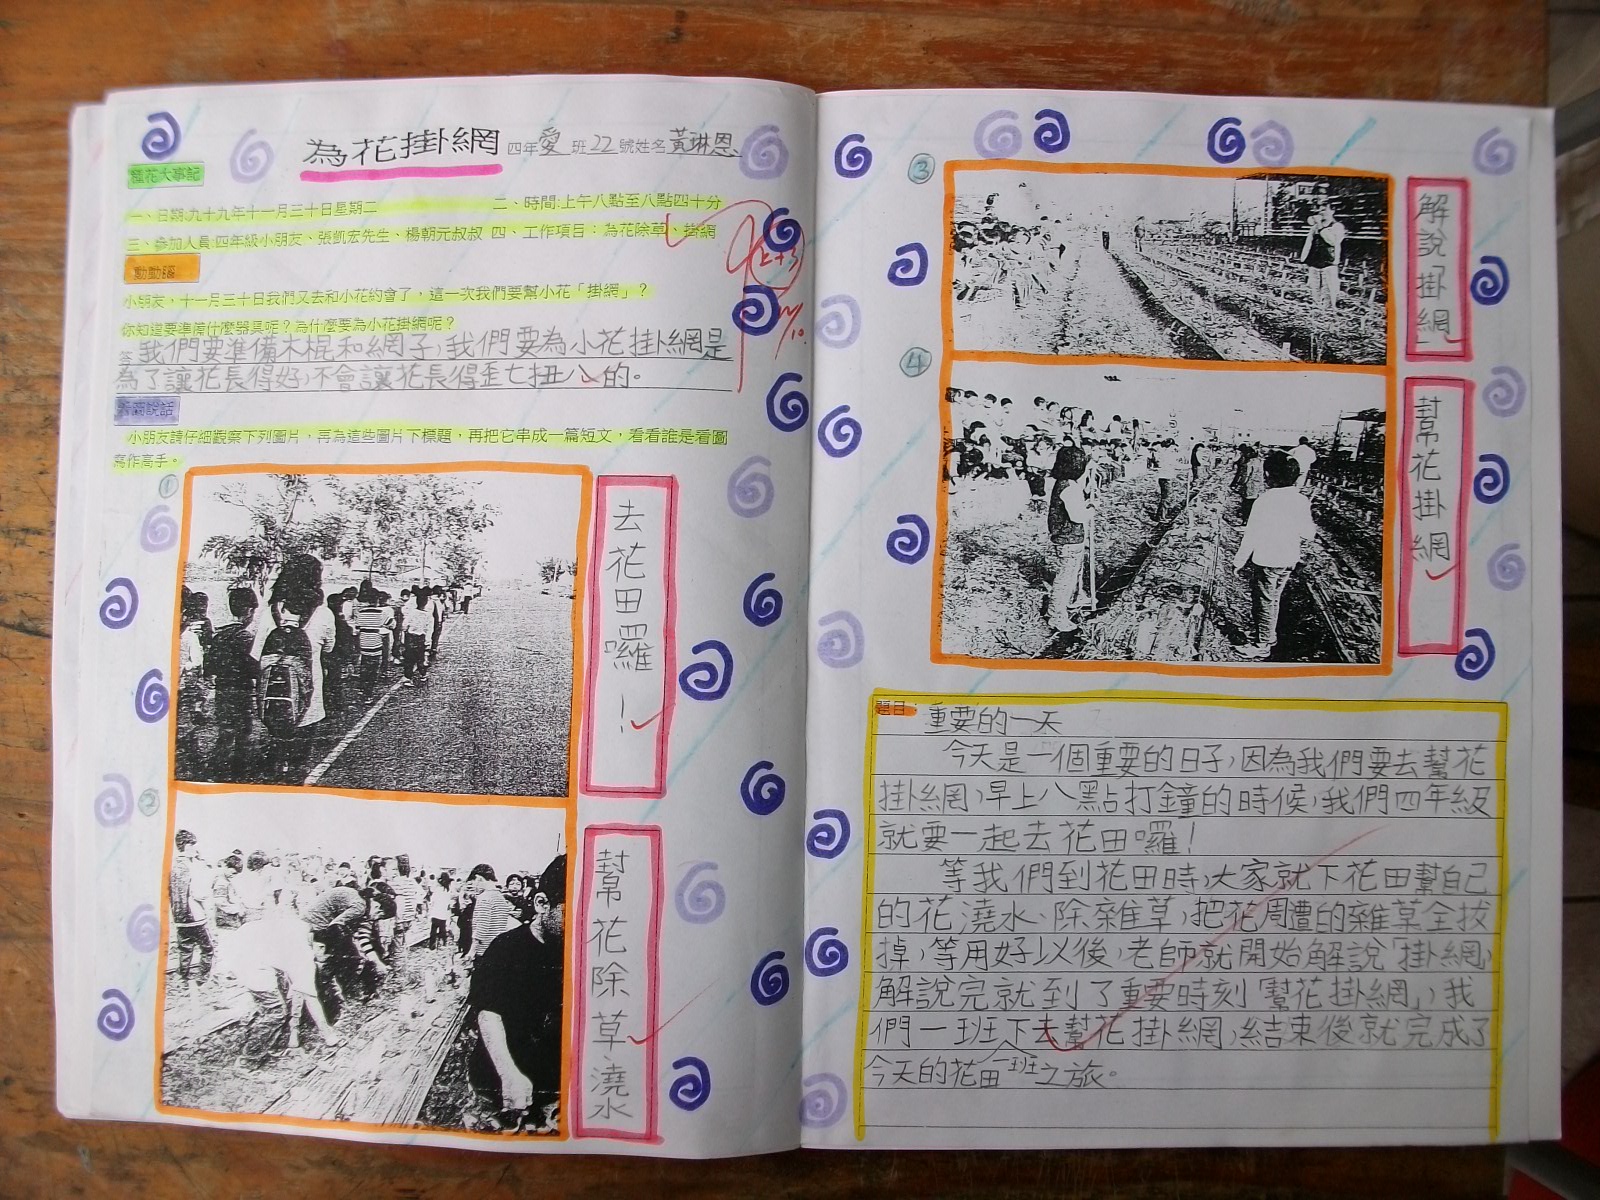 為花掛網 四年愛班22號姓名黃琳恩
種花大事記
一、日期:九十九年十一月三十日星期二 二、時間:上午八點至八點四十分
三、參加人員:四年級小朋友、張凱宏先生、楊朝元叔叔 四、工作項目:為花除草、掛網
動動腦
小朋友,十一月三十日我們又去和小花約會了,這一次我們要幫小花「掛網」?
你知道要準備什麼器具呢?為什麼要為小花掛網呢?
答 我們要準備木棍和網子,我們要為小花掛網是
為了讓花長得好,不會讓花長得歪七扭八的。
看圖說話
小朋友請仔細觀察下列圖片,再為這些圖片下標題,再把它串成一篇短文,看看誰是看圖
寫作高手。
①
去花田囉!
②
幫花除草澆水
③
解說掛網
④
幫花掛網
題目:重要的一天
今天是一個重要的日子,因為我們要去幫花
掛網,早上八點打鐘的時候,我們四年級
就要一起去花田囉!
等我們到花田時,大家就下花田幫自己
的花澆水、除雜草,把花周遭的雜草全拔
掉,等用好以後,老師就開始解說「掛網」,
解說完就到了重要時刻「幫花掛網」,我
們一班一班下去幫花掛網,結束後就完成了
今天的花田之旅。